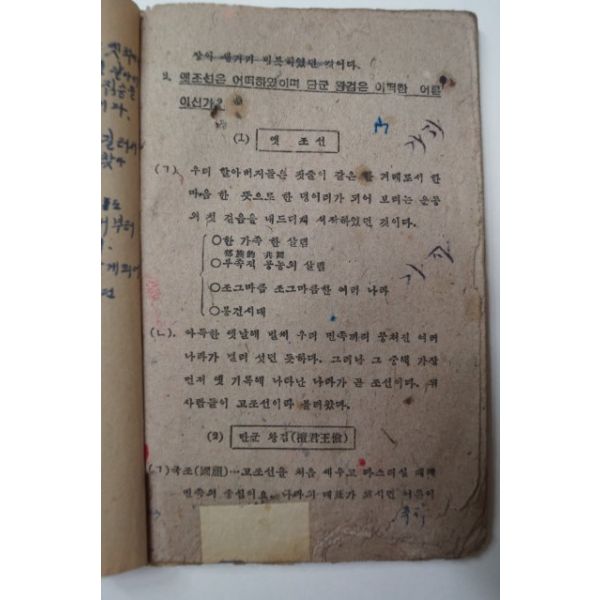 2. 옛조선은 어떠하였이며 단군 왕검은 어떠한 어른
이신가?
(1) 옛 조선
(ㄱ) 우리 할아버지들은 핏줄이 같은 한 겨레로서 한
마음 한 뜻으로 한 덩어리가 되어 보려는 운동
의 첫 걸음을 내드디게 시작하였던 것이다.
○한 가족 한 살림
部族的 共同
○부족적 공동의 살림
○조그마큼 조그마큼한 여러 나라
○봉건시대
(ㄴ). 아득한 옛날에 벌써 우리 민족끼리 뭉쳐진 여러
나라가 벌려 섯던 듯하다. 그러나 그 중에 가장
먼저 옛 기록에 나타난 나라가 곧 조선이다. 뒤
사람들이 고조선이라 불러왔다.
(2) 단군 왕검(檀君王儉)
(ㄱ)국조(國祖)…고조선을 처음 세우고 다스리실 때에
민족의 중심이요. 나라의 대표가 되시던 어른이